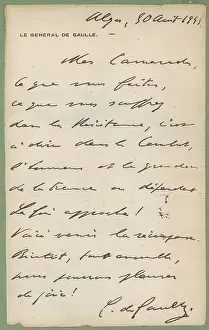 Alger, 30 Avril 1944
LE GÉNÉRAL DE GAULLE.
Mes Camarades,
Ce que vous faites,
ce que vous souffrez
dans la Résistance, c'est
à dire dans le Combat,
l'honneur et la grandeur
de la France en dépendent.
La fin approche !
Voici venir la récompense.
Bientôt, tous ensemble,
nous pourrons pleurer
de joie !
C. de Gaulle